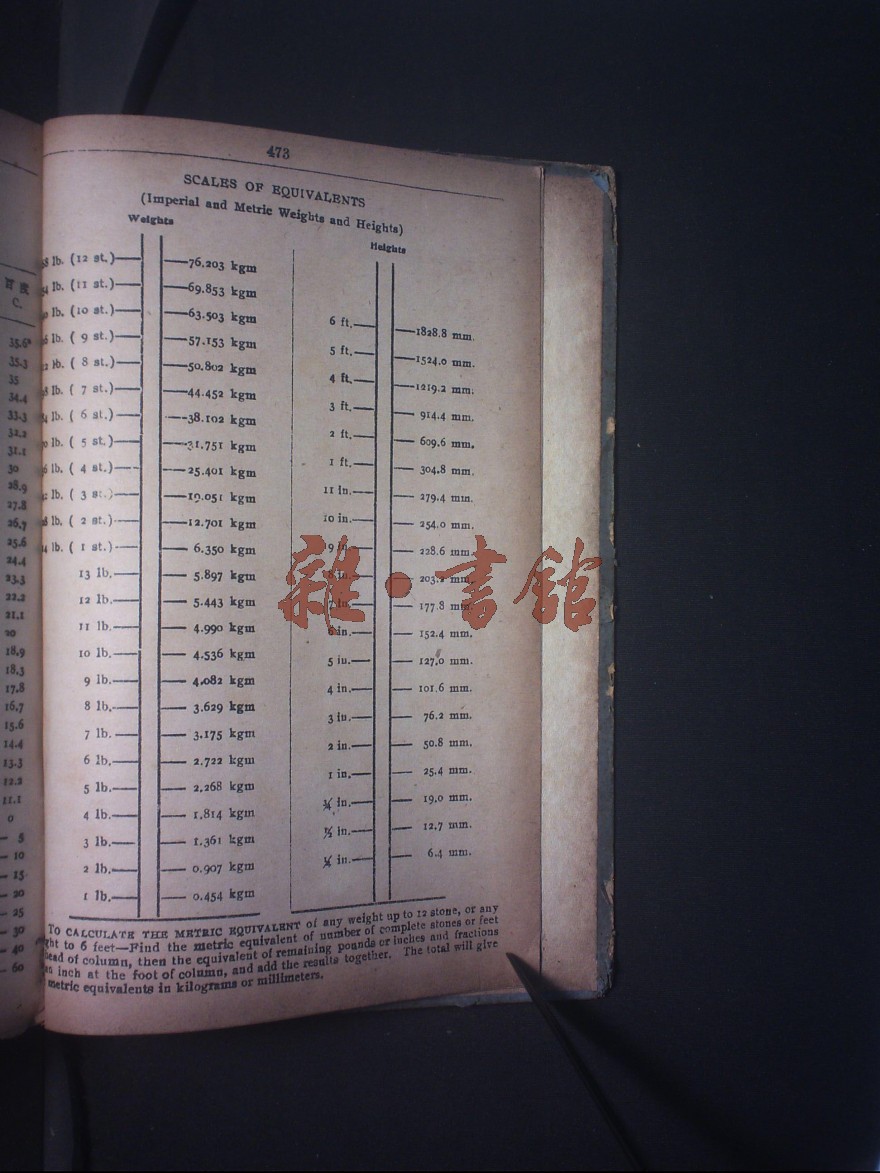 473
SCALES OF EQUIVALENTS
(Imperial and Metric Weights and Heights)
Weights
lb. (12 st.) 76.203 kgm
lb. (11 st.) 69.853 kgm
lb. (10 st.) 63.503 kgm
lb. ( 9 st.) 57.153 kgm
lb. ( 8 st.) 50.802 kgm
lb. ( 7 st.) 44.452 kgm
lb. ( 6 st.) 38.102 kgm
lb. ( 5 st.) 31.751 kgm
lb. ( 4 st.) 25.401 kgm
lb. ( 3 st.) 19.051 kgm
lb. ( 2 st.) 12.701 kgm
lb. ( 1 st.) 6.350 kgm
13 lb. 5.897 kgm
12 lb. 5.443 kgm
11 lb. 4.990 kgm
10 lb. 4.536 kgm
9 lb. 4.082 kgm
8 lb. 3.629 kgm
7 lb. 3.175 kgm
6 lb. 2.722 kgm
5 lb. 2.268 kgm
4 lb. 1.814 kgm
3 lb. 1.361 kgm
2 lb. 0.907 kgm
1 lb. 0.454 kgm
Heights
6 ft. 1828.8 mm.
5 ft. 1524.0 mm.
4 ft. 1219.2 mm.
3 ft. 914.4 mm.
2 ft. 609.6 mm.
1 ft. 304.8 mm.
11 in. 279.4 mm.
10 in. 254.0 mm.
9 in. 228.6 mm.
8 in. 203.2 mm.
7 in. 177.8 mm.
6 in. 152.4 mm.
5 in. 127.0 mm.
4 in. 101.6 mm.
3 in. 76.2 mm.
2 in. 50.8 mm.
1 in. 25.4 mm.
¾ in. 19.0 mm.
½ in. 12.7 mm.
¼ in. 6.4 mm.
TO CALCULATE THE METRIC EQUIVALENT of any weight up to 12 stone, or any
to 6 feet—Find the metric equivalent of number of complete stones or feet
of column, then the equivalent of remaining pounds or inches and fractions
inch at the foot of column, and add the results together. The total will give
metric equivalents in kilograms or millimeters.
C.
35.6°
35.3
35
34.4
33.3
32.2
31.1
30
28.9
27.8
26.7
25.6
24.4
23.3
22.2
21.1
20
18.9
18.3
17.8
16.7
15.6
14.4
13.3
12.2
11.1
0
— 5
— 10
— 15
— 20
— 25
— 30
— 40
— 60
雜·書館